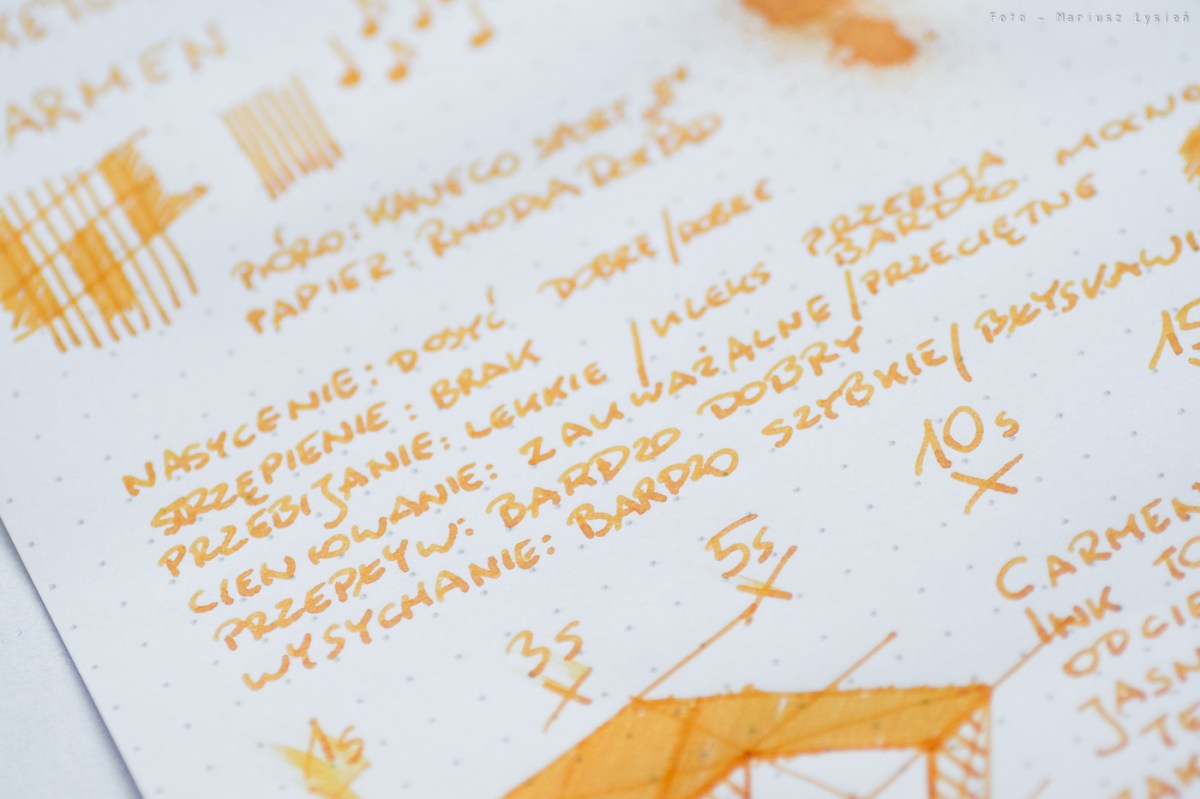 Foto - Mariusz Łysień
ARMEN
PIÓRO: KAWECO SPORT „F”
PAPIER: RHODIA DOTPAD
NASYCENIE: DOSYĆ DOBRE/DOBRE
STRZĘPIENIE: BRAK
PRZEBIJANIE: LEKKIE / KLEKS PRZEBIJA BARDZO MOCNO
CIENIOWANIE: ZAUWAŻALNE/PRZECIĘTNE
PRZEPŁYW: BARDZO DOBRY
WYSYCHANIE: BARDZO SZYBKIE/BŁYSKAWI
1s
3s
5s
10s
15
CARMEN
INK TO
ODCIE
JASN
TE